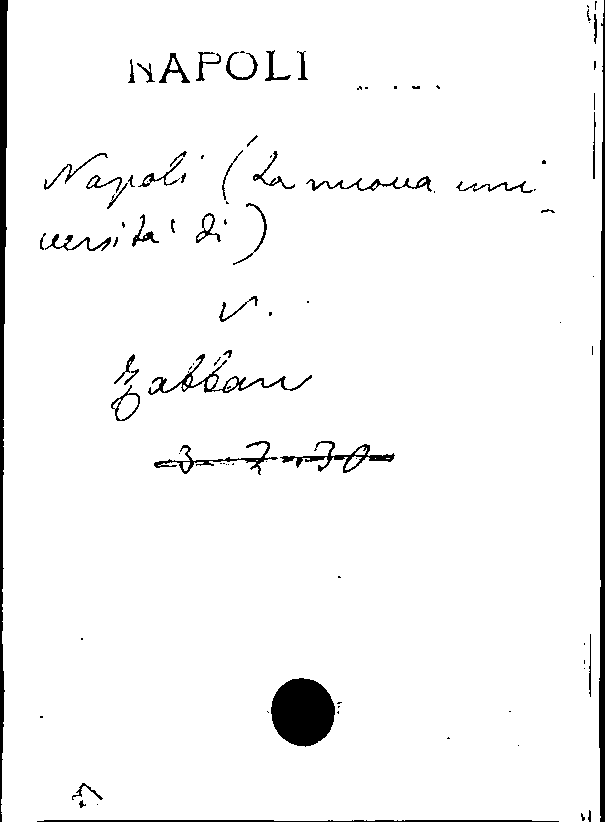 NAPOLI
Napoli (La nuova uni-
versità di)
v.
Zabban
3-2-30